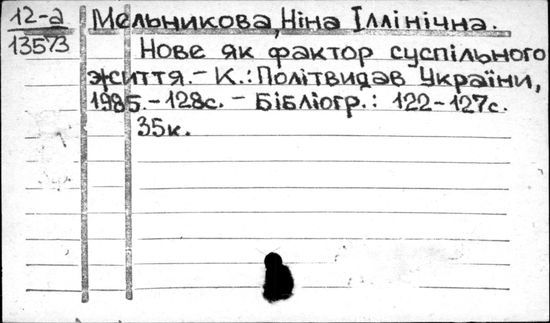 12-а
13573
Мельникова, Ніна Іллінічна.
Нове як фактор суспільного
життя.- К.: Політвидав України,
1985.-128с. - Бібліогр.: 122-127с.
35к.